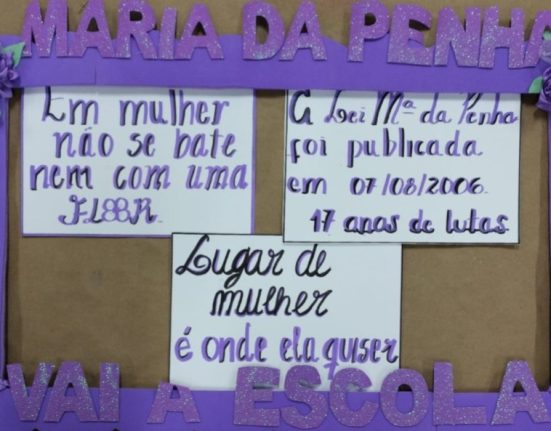 MARIA DA PENHA
Em mulher
não se bate
nem com uma
FLOR.
A Lei Mª da Penha
foi publicada
em 07/08/2006.
17 anos de lutas
Lugar de
mulher
é onde ela quiser
VAI A ESCOLA